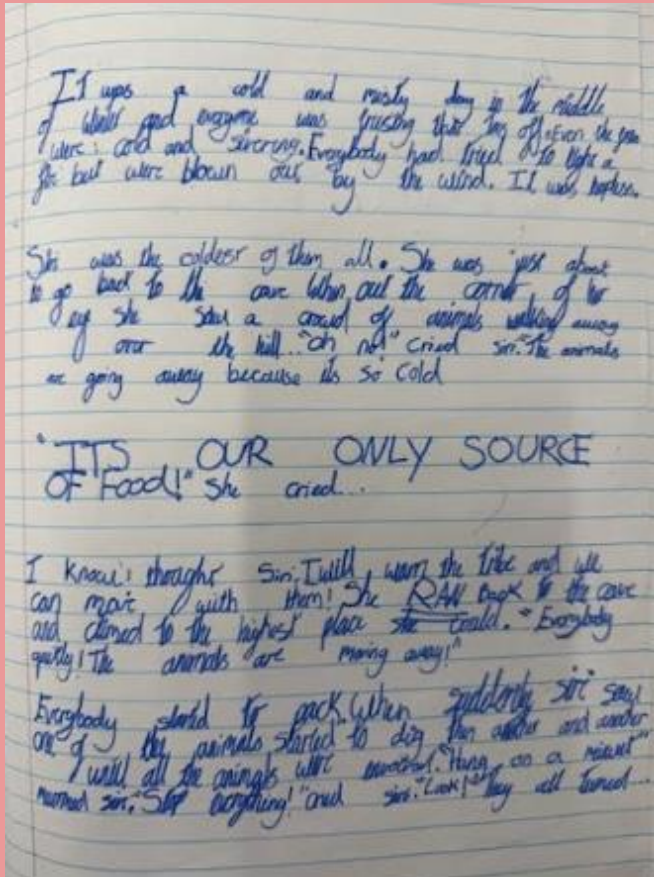 It was a cold and misty day in the middle
of winter and everyone was freesing their off. Even the
were cold and . Everybody had tried to light a
fire but were blown out by the wind. It was hopless.
She was the coldest of them all. She was just about
to go back to the cave when out the corner of her
eye she saw a crowd of animals walking away
over the hill. "oh no!" cried siri. "The animals
are going away because its so cold
"ITS OUR ONLY SOURCE
OF Food!" She cried...
I know! thought Siri, I will warn the tribe and we
can move with them! She RAN back to the cave
and climed to the highest place she could. "Everybody
! The animals are moving away!"
Everybody started to pack. When suddenly siri saw
one of the animals started to dig then another and another
until all the animals were . "Hang on a minuet"
siri. "Stop everything!" cried siri. "Look!" They all turned...